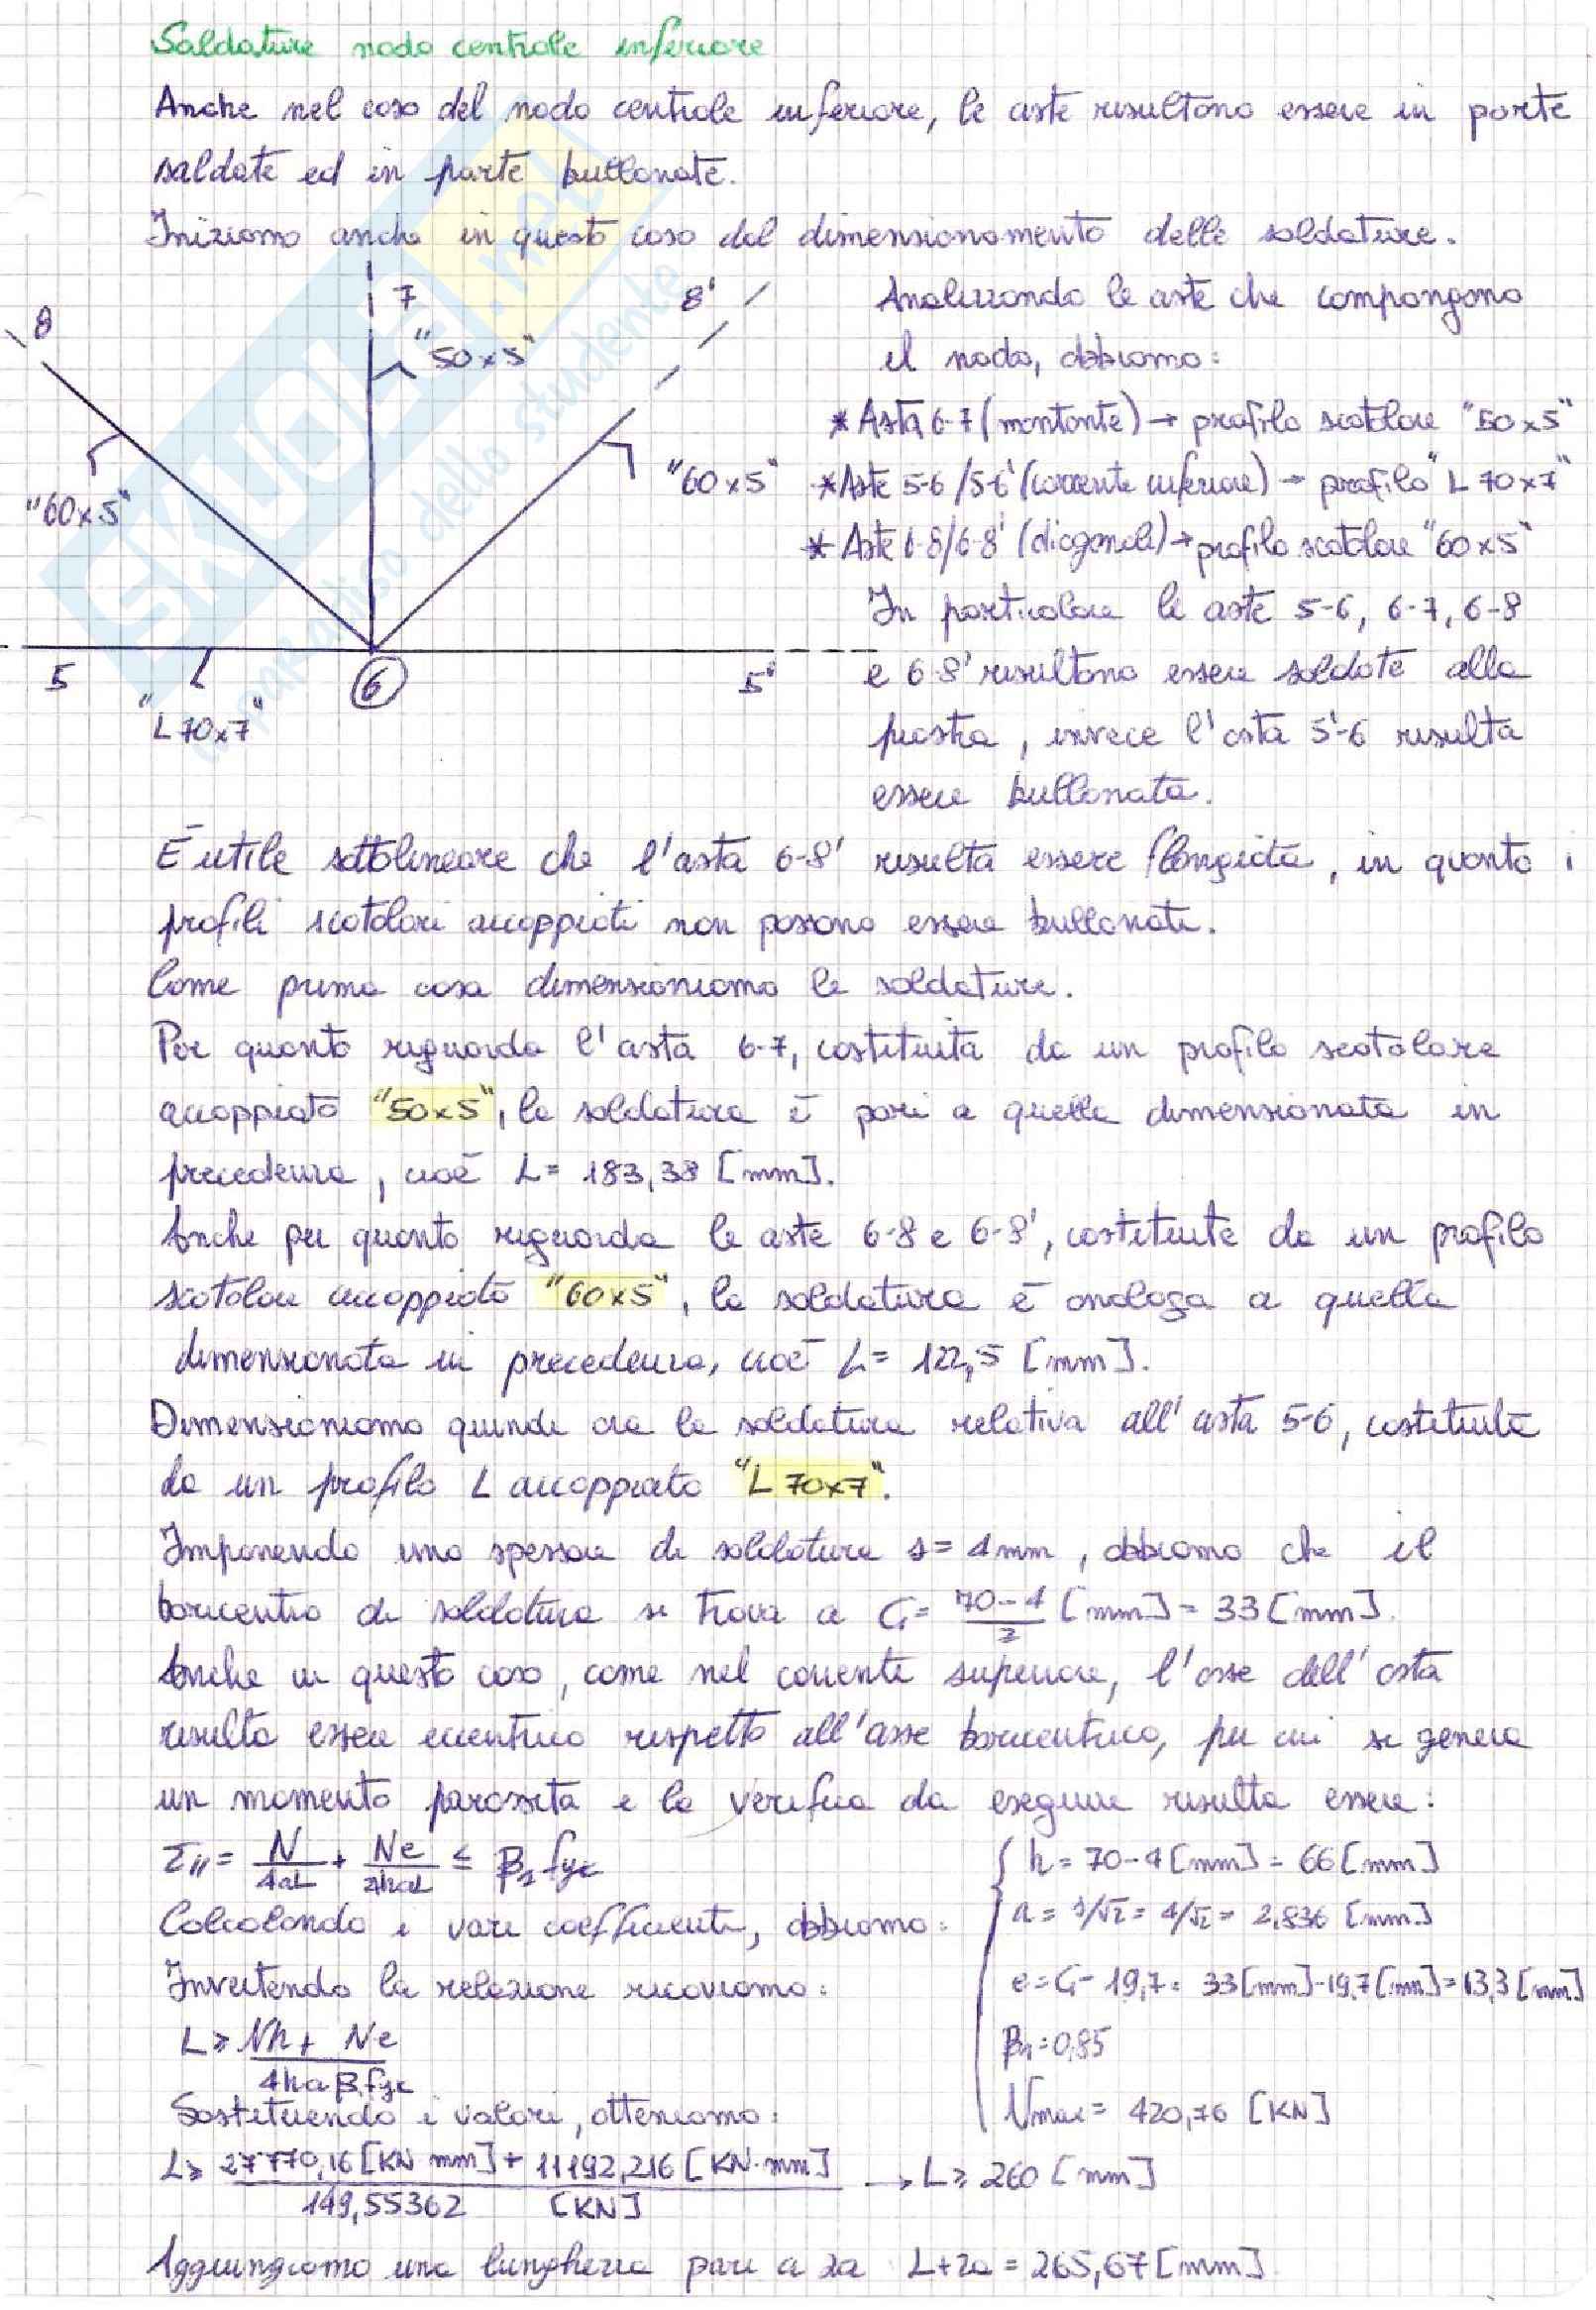 Saldature nodo centrale inferiore
Anche nel caso del nodo centrale inferiore, le aste risultano essere in parte
saldate ed in parte bullonate.
Iniziamo anche in questo caso dal dimensionamento delle saldature.
8
7
8'
"50x5"
"60x5"
"60x5"
5
6
5'
"L70x7"
Analizzando le aste che compongono
il nodo, abbiamo:
* Asta 6-7 (montante) → profilo scatolare "50x5"
* Aste 5-6/5-6' (corrente inferiore) → profilo "L 70x7"
* Aste 6-8/6-8' (diagonali) → profilo scatolare "60x5"
In particolare le aste 5-6, 6-7, 6-8
e 6-8' risultano essere saldate alla
piastra, invece l'asta 5'-6 risulta
essere bullonata.
È utile sottolineare che l'asta 6-8' risulta essere flangiata, in quanto i
profili scatolari accoppiati non possono essere bullonati.
Come prima cosa dimensioniamo le saldature.
Per quanto riguarda l'asta 6-7, costituita da un profilo scatolare
accoppiato "50x5", la saldatura è pari a quella dimensionata in
precedenza, cioè L= 183,38 [mm].
Anche per quanto riguarda le aste 6-8 e 6-8', costituite da un profilo
scatolare accoppiato "60x5", la saldatura è analoga a quella
dimensionata in precedenza, cioè L= 122,5 [mm].
Dimensioniamo quindi ora la saldatura relativa all'asta 5-6, costituita
da un profilo L accoppiato "L 70x7".
Imponendo uno spessore di saldatura s= 4mm, abbiamo che il
baricentro di saldatura si trova a G= 70-4/2 [mm] = 33 [mm].
Anche in questo caso, come nel corrente superiore, l'asse dell'asta
risulta essere eccentrico rispetto all'asse baricentrico, per cui si genera
un momento parassita e la verifica da eseguire risulta essere:
τ// = N/4aL + Ne/4haL ≤ β1 fyk
Calcolando i vari coefficienti, abbiamo:
h = 70-4 [mm] = 66 [mm]
a = s/√2 = 4/√2 = 2,836 [mm]
e = G - 19,7 = 33 [mm] - 19,7 [mm] = 13,3 [mm]
β1 = 0,85
Nmax = 420,76 [KN]
Invertendo la relazione ricaviamo:
L ≥ Nh + Ne / 4ha β1 fyk
Sostituendo i valori, otteniamo:
L ≥ 27770,16 [KN mm] + 11192,216 [KN·mm] / 149,55362 [KN] → L ≥ 260 [mm]
Aggiungiamo una lunghezza pari a 2a L+2a = 265,67 [mm]